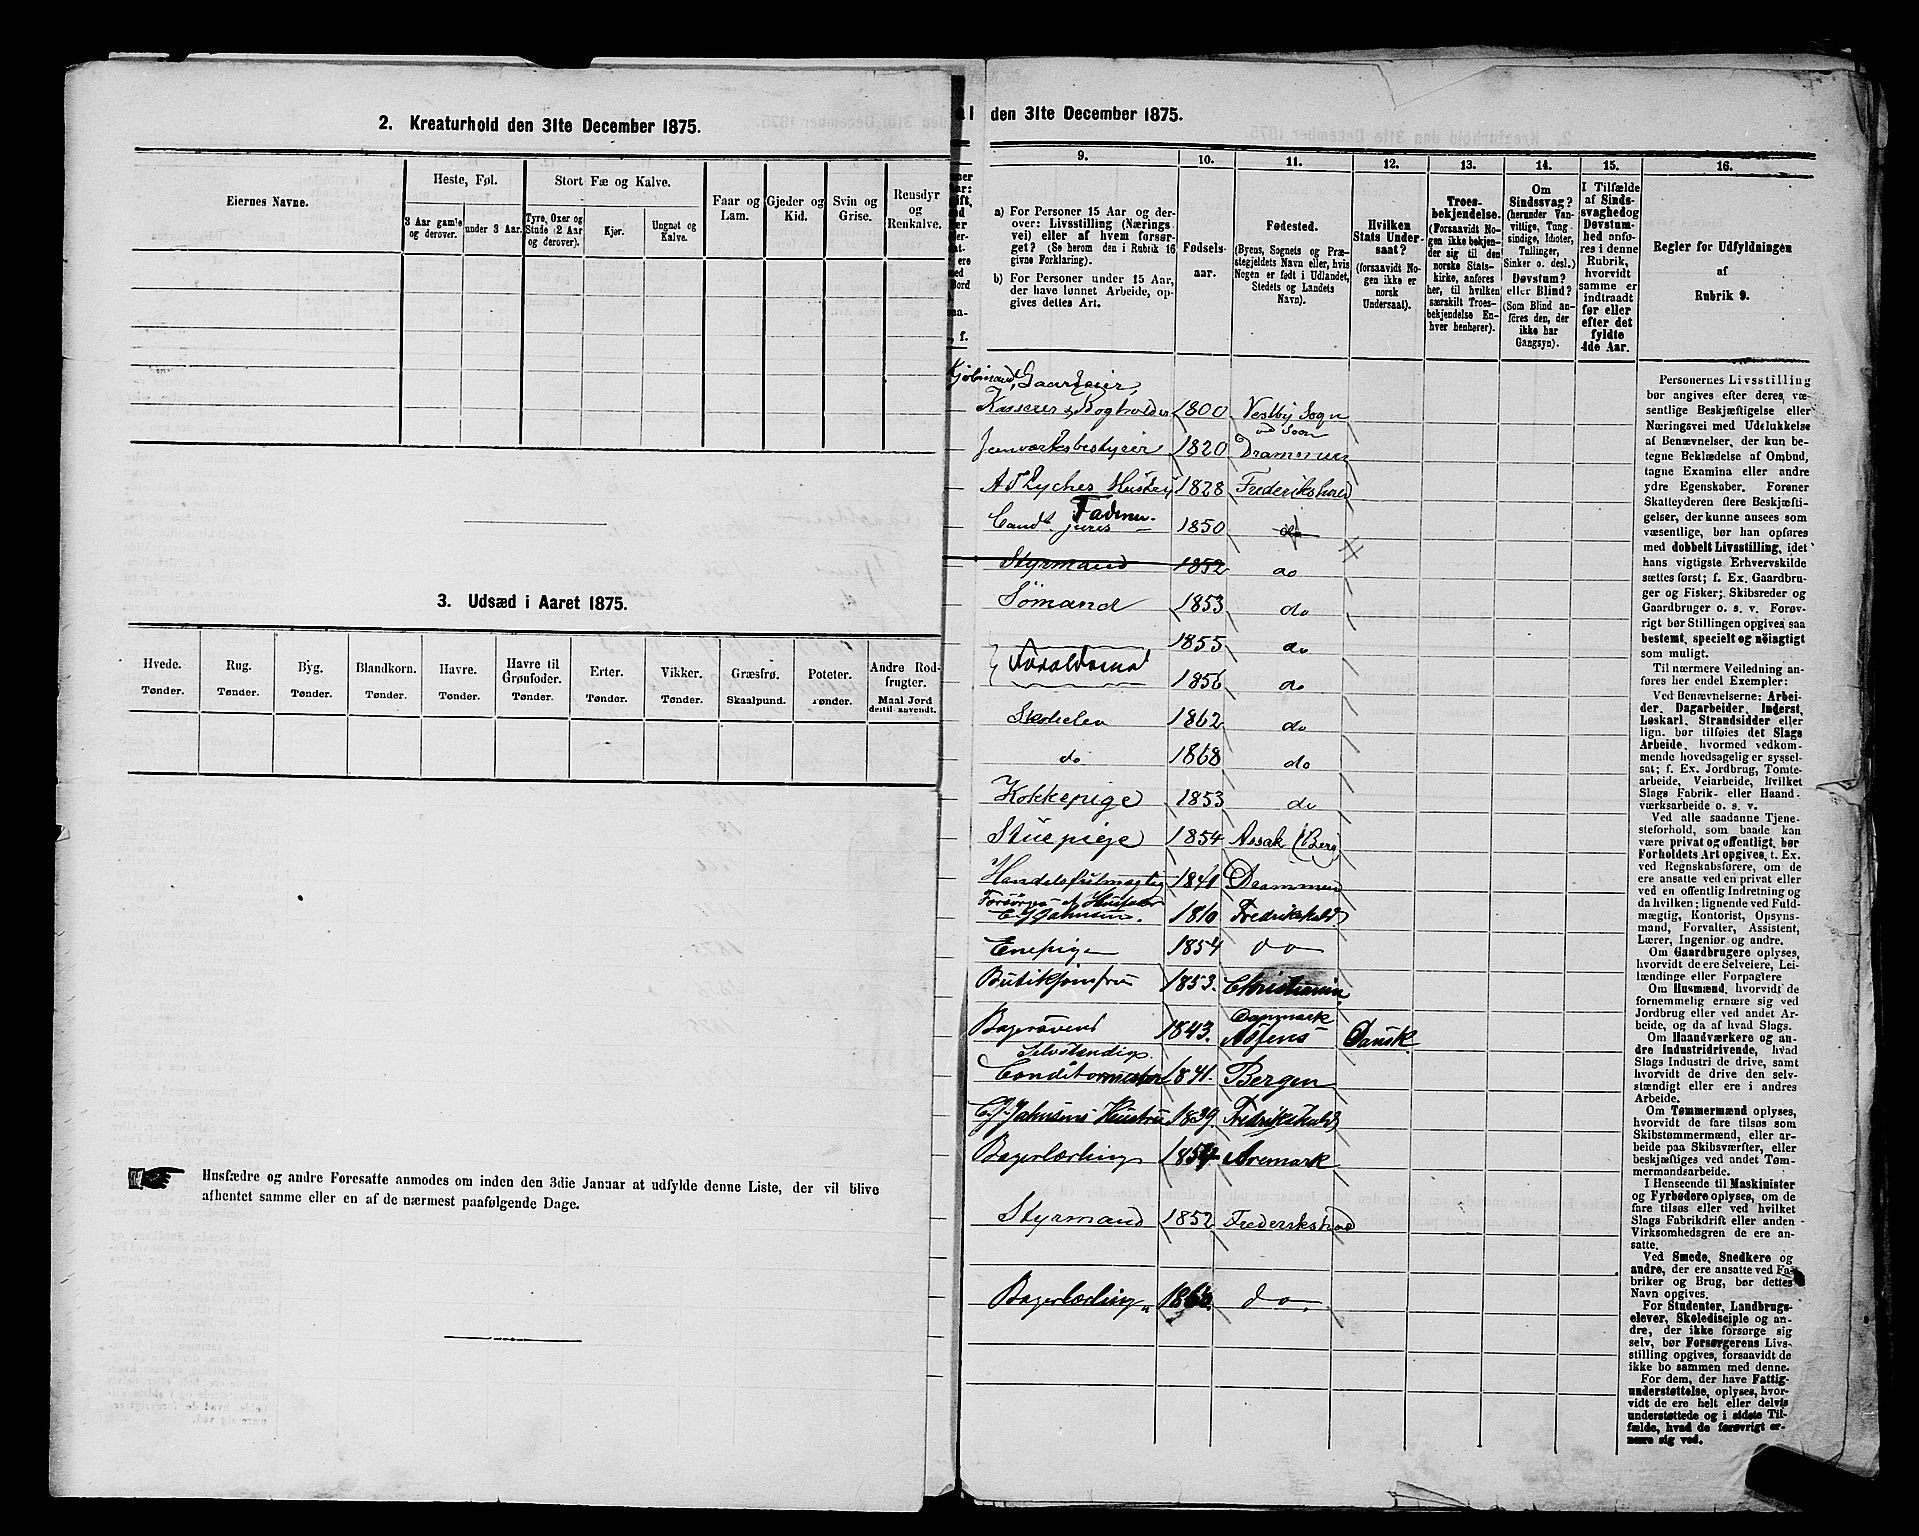 2. Kreaturhold den 31te December 1875.
Eiernes Navne.
Heste, Føl.
Stort Fæ og Kalve.
Faar og Lam.
Gjeder og Kid.
Svin og Grise.
Rensdyr og Renkalve.
3 Aar gamle og derover.
under 3 Aar.
Tyre, Oxer og Stude (2 Aar og derover).
Kjør.
Ungnøt og Kalve.
3. Udsæd i Aaret 1875.
Hvede. Rug. Byg. Blandkorn. Havre. Havre til Grønfoder. Erter. Vikker. Græsfrø. Poteter. Andre Rodfrugter.
Tønder. Tønder. Tønder. Tønder. Tønder. Tønder. Tønder. Tønder. Skaalpund. Tønder. Maal Jord dertil anvendt.
Husfædre og andre Foresatte anmodes om inden den 3die Januar at udfylde denne Liste, der vil blive
afhentet samme eller en af de nærmest paafølgende Dage.
den 31te December 1875.
9. 10. 11. 12. 13. 14. 15. 16.
a) For Personer 15 Aar og derover: Livsstilling (Næringsvei) eller af hvem forsørget? (Se herom den i Rubrik 16 givne Forklaring).
b) For Personer under 15 Aar, der have lønnet Arbeide, opgives dettes Art.
Fødselsaar.
Fødested.
(Byens, Sognets og Præstegjeldets Navn eller, hvis Nogen er født i Udlandet, Stedets og Landets Navn).
Hvilken Stats Undersaat?
(forsaavidt Nogen ikke er norsk Undersaat).
Troesbekjendelse.
(Forsaavidt Nogen ikke bekjender sig til den norske Statskirke, anføres her, til hvilken særskilt Troesbekjendelse Enhver henhører).
Om Sindssvag?
(herunder Vanvittige, Tungsindige, Idioter, Tullinger, Sinker o. desl.)
Døvstum? eller Blind?
(Som Blind anføres den, der ikke har Gangsyn).
I Tilfælde af Sindssvaghed og Døvstumhed anføres i denne Rubrik, hvorvidt samme er indtraadt før eller efter det fyldte 4de Aar.
Regler for Udfyldningen
af
Rubrik 9.
Kjøbmand, Gaardeier,
Kasserer & Bogholder 1800 Vestby Sogn
ved Soon
Jernværksbestyrer 1820 Drammen
1828 Frederikshald
Candt juris 1850 do
Styrmand 1852 do
Sømand 1853 do
1855 do
1856 do
1862 do
do 1868 do
Kokkepige 1853 do
Stuepige 1854 Assak (Berg)
Handelsfuldmægtig 1841 Drammen
Forsørges af Husfader
C J Jahnsen. 1810 Fredrikshald
Enepige 1854 do
Butikjomfru 1853. Christiania
Danmark
Bagersvend 1843. Assens Dansk.
Selvstændig
Conditormester 1841. Bergen
C. J. Jahnsens Hustru 1839. Fredrikshald
Bagerlærling 1854 Aremark
Styrmand 1852 Frederikshald
Bagerlærling 1860. do.
Personernes Livsstilling
bør angives efter deres væ-
sentlige Beskjæftigelse eller
Næringsvei med Udelukkelse
af Benævnelser, der kun be-
tegne Beklædelse af Ombud,
tagne Examina eller andre
ydre Egenskaber. Forener
Skatteyderen flere Beskjæfti-
gelser, der kunne ansees som
væsentlige, bør han opføres
med dobbelt Livsstilling, idet
hans vigtigste Erhvervskilde
sættes først; f. Ex. Gaardbru-
ger og Fisker; Skibsreder og
Gaardbruger o. s. v. Forøv-
rigt bør Stillingen opgives saa
bestemt, specielt og nøiagtigt
som muligt.
Til nærmere Veiledning an-
føres her endel Exempler:
Ved Benævnelserne: Arbei-
der, Dagarbeider, Inderst,
Løskarl, Strandsidder eller
lign. bør tilføies det Slags
Arbeide, hvormed vedkom-
mende hovedsagelig er syssel-
sat; f. Ex. Jordbrug, Tomte-
arbeide, Veiarbeide, hvilket
Slags Fabrik- eller Haand-
værksarbeide o. s. v.
Ved alle saadanne Tjene-
steforhold, som baade kan
være privat og offentligt, bør
Forholdets Art opgives, t. Ex.
ved Regnskabsførere, om de
ere ansatte ved en privat eller
ved en offentlig Indretning og
da hvilken; lignende ved Fuld-
mægtig, Kontorist, Opsyns-
mand, Forvalter, Assistent,
Lærer, Ingeniør og andre.
Om Gaardbrugere oplyses,
hvorvidt de ere Selveiere, Lei-
lændinge eller Forpagtere
Om Husmænd, hvorvidt de
fornemmelig ernære sig ved
Jordbrug eller ved andet Ar-
beide, og da af hvad Slags.
Om Haandværkere og an-
dre Industridrivende, hvad
Slags Industri de drive, samt
hvorvidt de drive den selv-
stændigt eller ere i andres
Arbeide.
Om Tømmermænd oplyses,
hvorvidt de fare tilsøs som
Skibstømmermænd, eller ar-
beide paa Skibsværfter, eller
beskjæftiges ved andet Tøm-
mermandsarbeide.
I Henseende til Maskinister
og Fyrbødere oplyses, om de
fare tilsøs eller ved hvilket
Slags Fabrikdrift eller anden
Virksomhedsgren de ere an-
satte.
Ved Smede, Snedkere og
andre, der ere ansatte ved Fa-
briker og Brug, bør dettes
Navn opgives.
For Studenter, Landbrugs-
elever, Skoledisciple og an-
dre, der ikke forsørge sig
selv, bør Forsørgerens Livs-
stilling opgives, forsaavidt de
ikke bo sammen med denne.
For dem, der have Fattig-
understøttelse, oplyses, hvor-
vidt de ere helt eller delvis
understøttede og i sidste Til-
fælde, hvad de forøvrigt er-
nære sig ved.